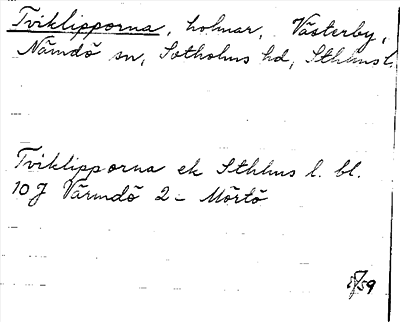 Tviklipporna, holmar, Västerby,
Nämdö sn, Sotholms hd, Sthlms l.
Tviklipporna ek Sthlms l. bl.
10 J Värmdö 2 - Mörtö